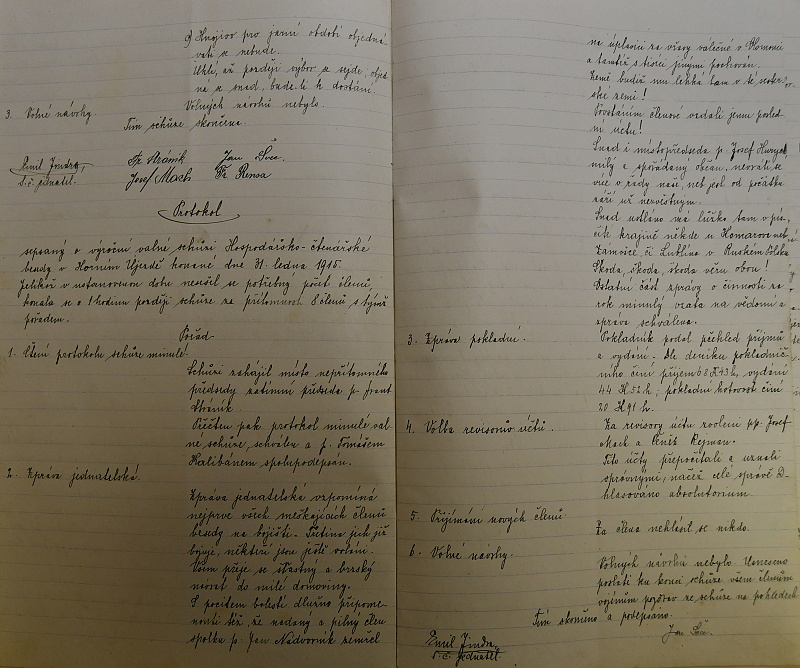 9 Hnojiv pro jarní období objedná
vati se nebude.
Uhlí, až později výbor se sejde, objed
ná se snad, bude-li k dostání.
3. Volné návrhy.
Volných návrhů nebylo.
Tím schůze skončena.
Emil Jindra,
t.č. jednatel.
Fr. Stránik Jan Švec.
Josef Mach Fr. Rensa
Protokol
sepsaný o výroční valné schůzi Hospodářsko-čtenářské
besedy v Horním Újezdě konané dne 31. ledna 1915.
Jelikož v ustanovenou dobu nesešel se potřebný počet členů,
konala se o 1 hodinu později schůze za přítomnosti 8 členů s týmž
pořadem.
Pořad.
1. Čtení protokolu schůze minulé.
Schůzi zahájil místo nepřítomného
předsedy zatímní předseda p. Frant.
Stránik
Přečten pak protokol minulé val-
né schůze, schválen a p. Tomášem
Kalibánem spolupodepsán.
2. Zpráva jednatelská.
Zpráva jednatelská vzpomíná
nejprve všech meškajících členů
besedy na bojišti. Třetina jich již
bojuje, někteří jsou ještě voláni.
Všem přeje se šťastný a brzský
návrat do milé domoviny.
S pocitem bolesti dlužno připome-
nouti též, že nadaný a pilný člen
spolku p. Jan Nádvorník zemřel
na úplavici za vřavy válečné v
a tamtéž s tisíci jinými pochován.
Zemi budiž mu lehká tam v té
ské zemi!
Povstáním členové vzdali jemu posled-
ní úctu!
Snad i místopředseda p. Josef
milý a spořádaný občan, nevrátí se
více v řady naše, neb jest od počátku
září už nezvěstným.
Snad ustláno má lůžko tam v pís-
čité krajině někde u Komarova neb
Zámoście, či Lublinu v Ruském Polsku
Škoda, škoda, škoda věru obou!
Ostatní část zprávy o činnosti za
rok minulý vzata na vědomí a
zpráva schválena.
3. Zpráva pokladní.
Pokladník podal přehled příjmů
a vydání. Dle deníku pokladnič-
ního činí příjem 68 K 43 h, vydání
44 K 52 h; pokladní hotovost činí
20 K 91 h.
4. Volba revisorův účtů.
Za revisory účtů zvoleni pp. Josef
Mach a Čeněk Rejman.
Tito účty přepočítali a uznali
správnými, načež celé správě od-
hlasováno absolutorium.
5. Přijímání nových členů
Za člena nehlásil se nikdo.
6. Volné návrhy.
Volných návrhů nebylo. Usneseno
poslati ku konci schůze všem členům
vojínům pozdrav ze schůze na pohledech
Tím skončeno a podepsáno.
Emil Jindra,
t.č. jednatel.
Jan Švec.